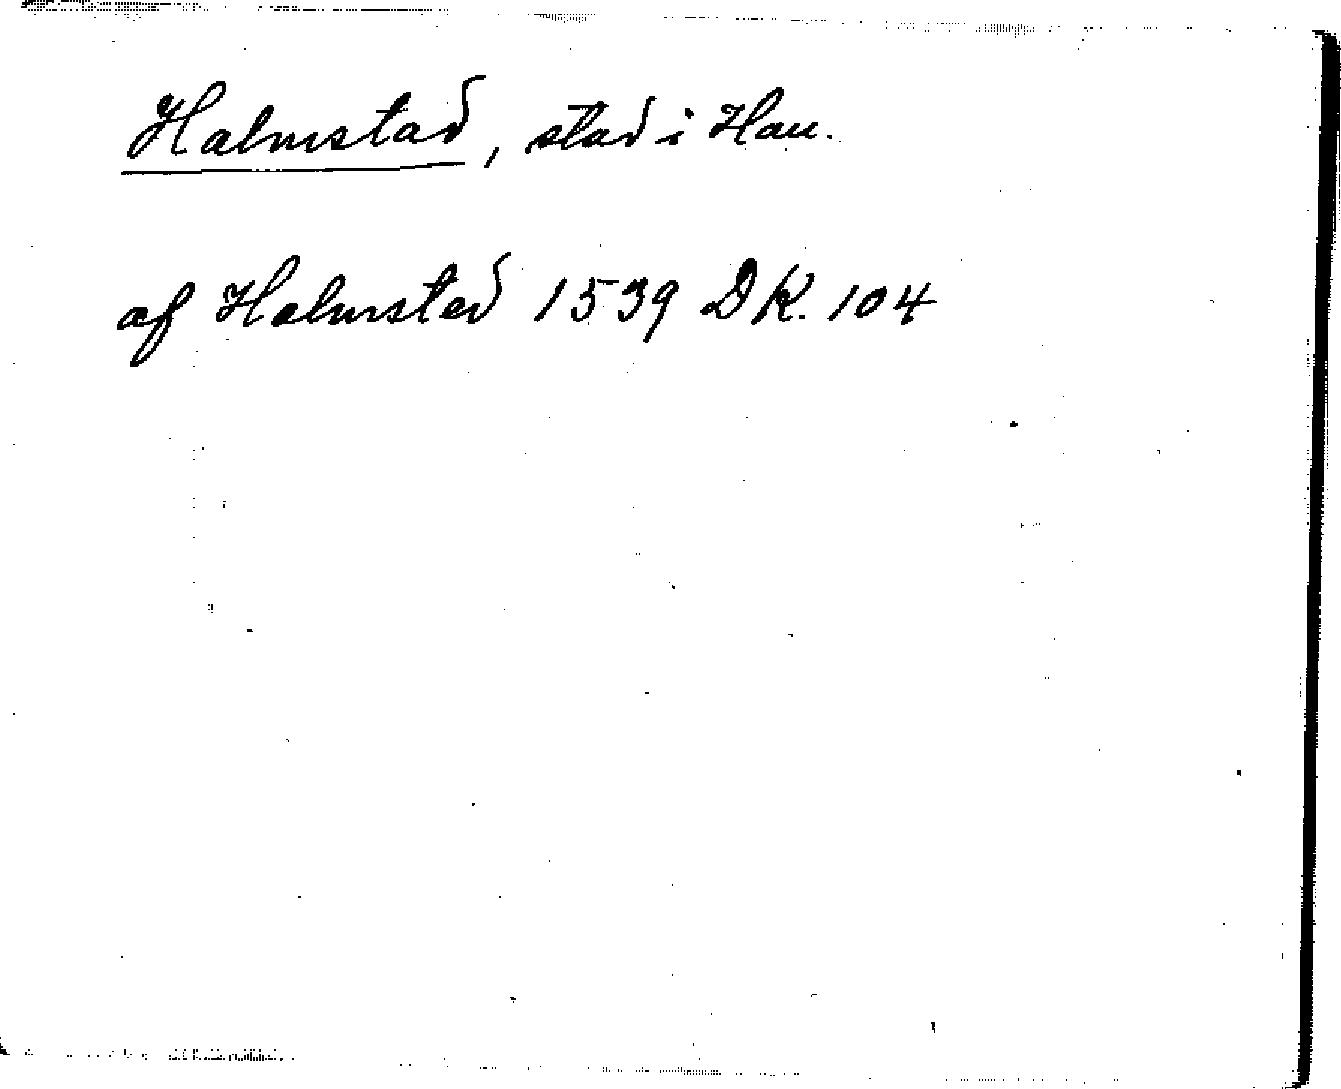 Halmstad, stad i Hall.
af Halmsted 1539 DK. 104